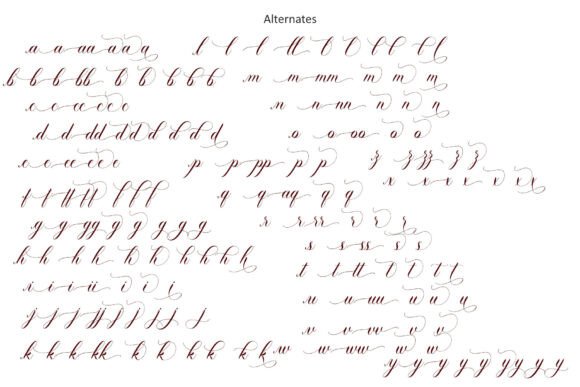 Alternates
a a aa a a a
b b b bb b b b b b
c c cc c c c
d d dd d d d d d
e e ee e e e
f f ff f f f
g g gg g g g g g
h h h h h h h h h
i i i ii i i i
j j j jj j j j j j
k k k kk k k k k k k
l l l ll l l l l l l
m m mm m m m
n n nn n n n
o o oo o o
p p pp p p
z z zz z z
x x x x x x x
q q qq q q
r r rr r r r
s s ss s s
t t tt t t t t
u u uu u u u
v v vv v v
w w ww w w
y y y y y y y y y